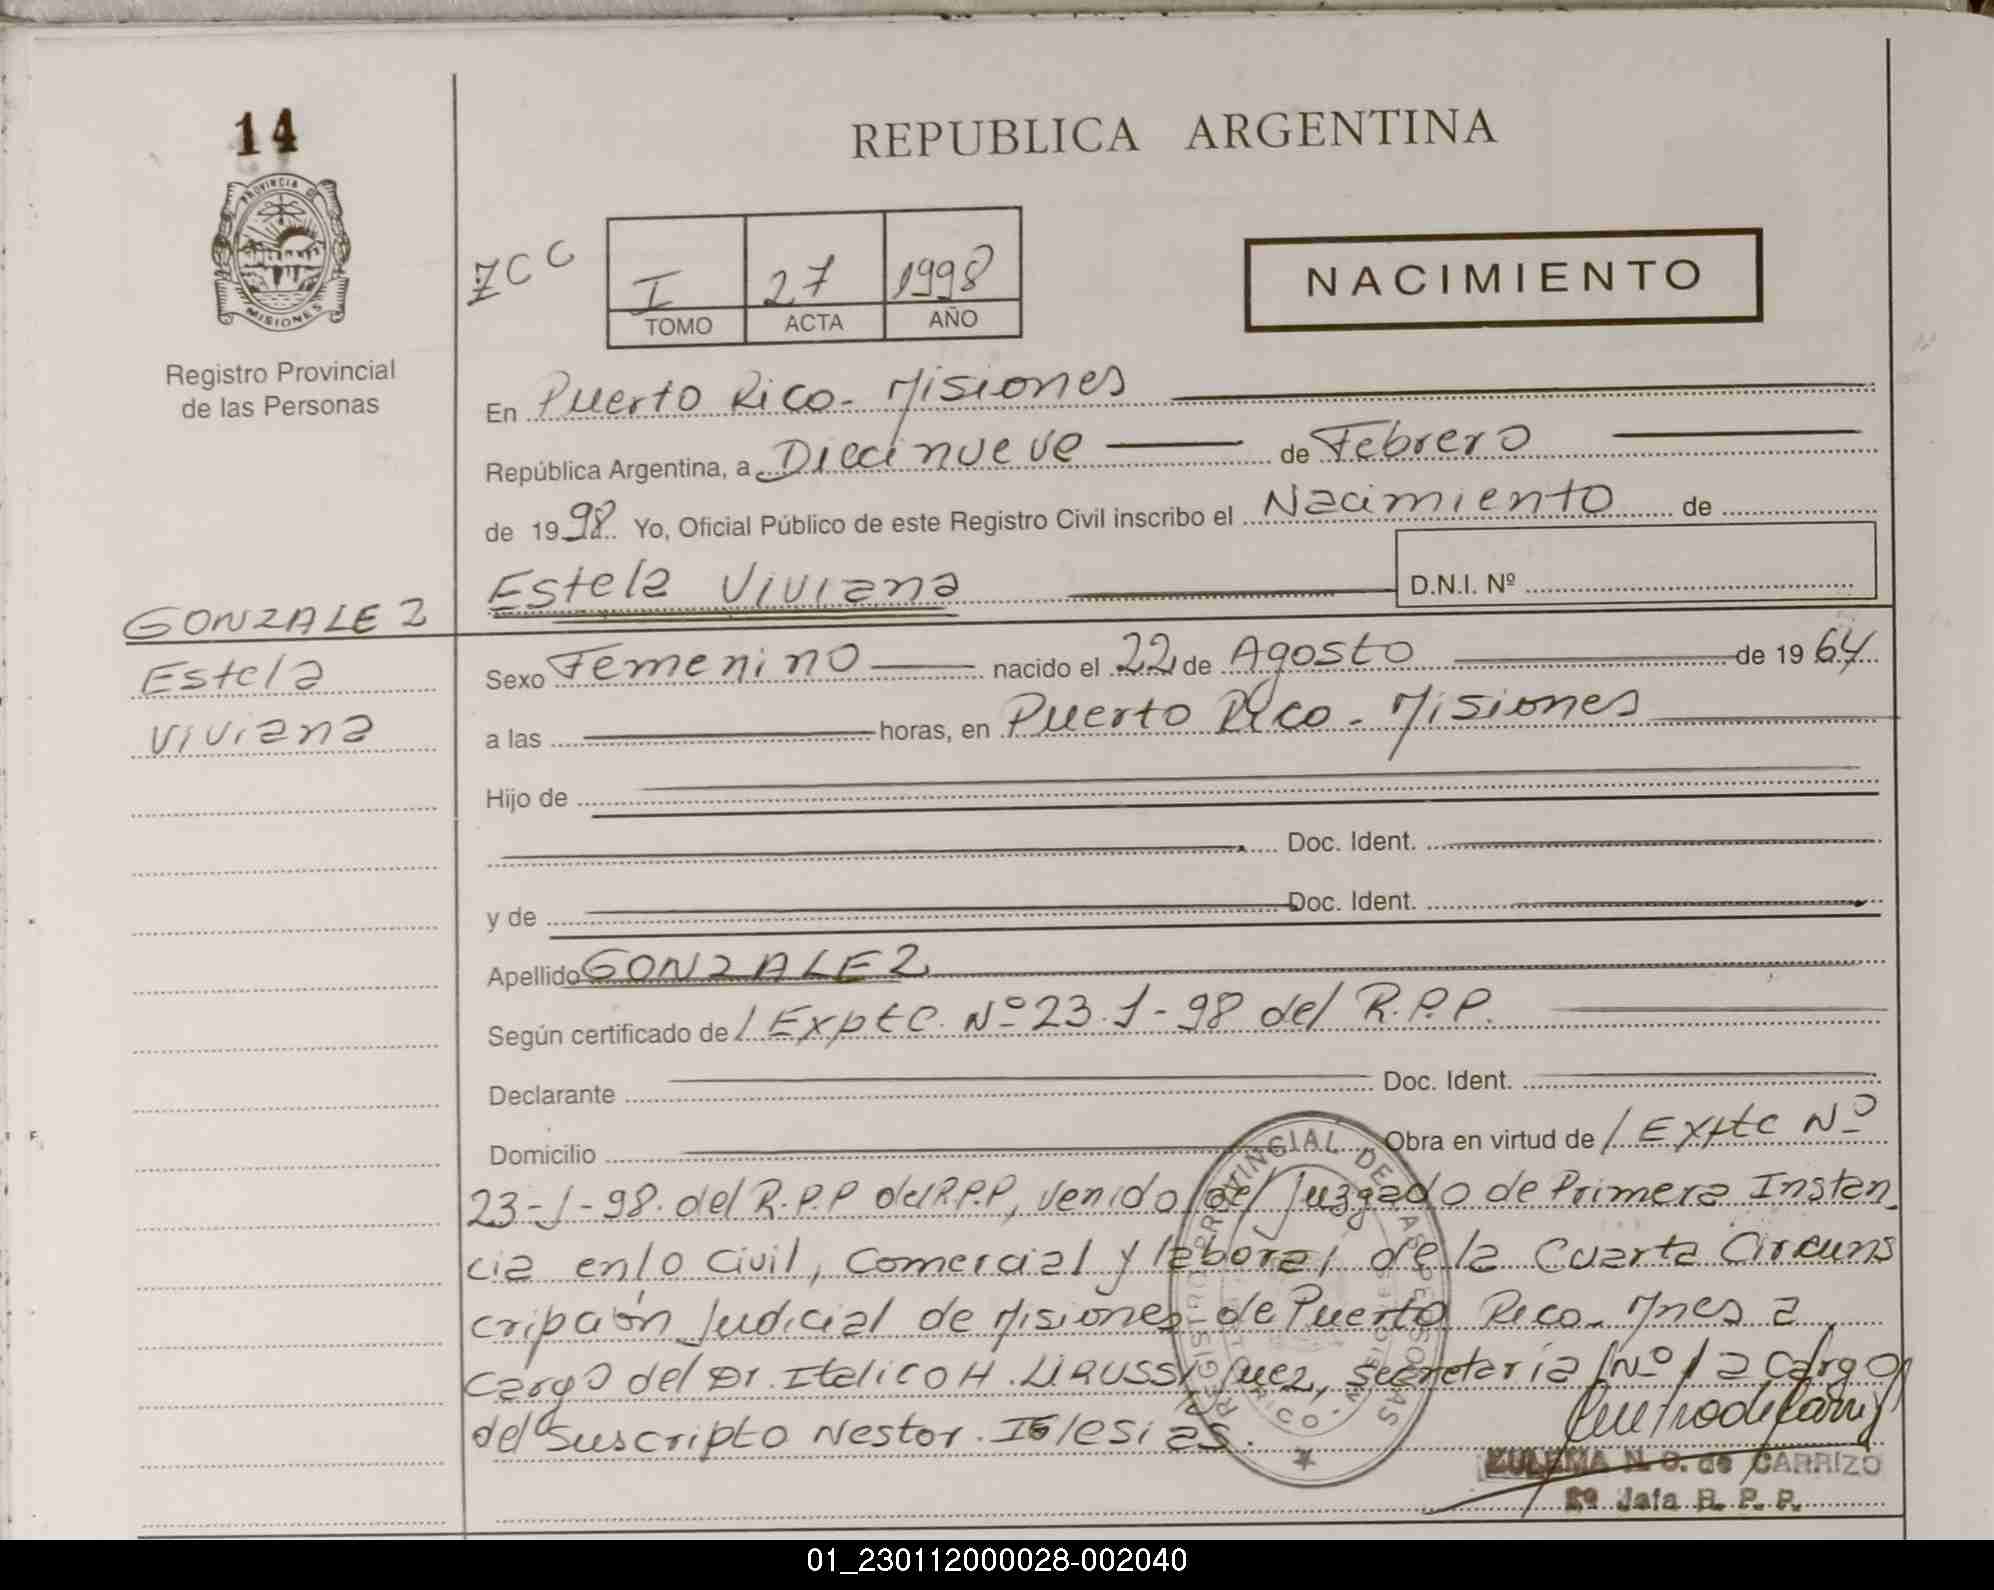 14
PROVINCIA DE
MISIONES
Registro Provincial
de las Personas
REPUBLICA ARGENTINA
ZCC
I 27 1998
TOMO ACTA AÑO
NACIMIENTO
En Puerto Rico - Misiones
República Argentina, a Diecinueve de Febrero
de 1998 Yo, Oficial Público de este Registro Civil inscribo el Nacimiento de
Estela Viviana D.N.I. Nº
GONZALEZ
Estela
Viviana
Sexo Femenino nacido el 22 de Agosto de 1964
a las horas, en Puerto Rico - Misiones
Hijo de
Doc. Ident.
y de Doc. Ident.
Apellido GONZALEZ
Según certificado de / Expte. Nº 23-J-98 del R.P.P.
Declarante Doc. Ident.
Domicilio Obra en virtud de / Expte Nº
23-J-98. del R.P.P del R.P.P, venido del Juzgado de Primera Instan
cia en lo Civil, Comercial y laboral de la Cuarta Circuns
cripción Judicial de Misiones de Puerto Rico - Mnes a
cargo del Dr. Italico H. Juez, Secretaria Nº 1 a cargo
del Suscripto Nestor. Iglesias.
REGISTRO PROVINCIAL DE LAS PERSONAS
ZULEMA N. O. de CARRIZO
2º Jefa R. P. P.
01_230112000028-002040